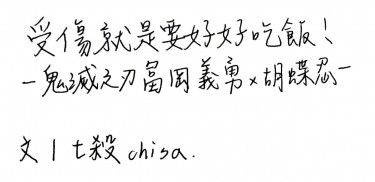 受傷就是要好好吃飯！
－鬼滅之刃富岡義勇×胡蝶忍－
文｜七殺chisa.